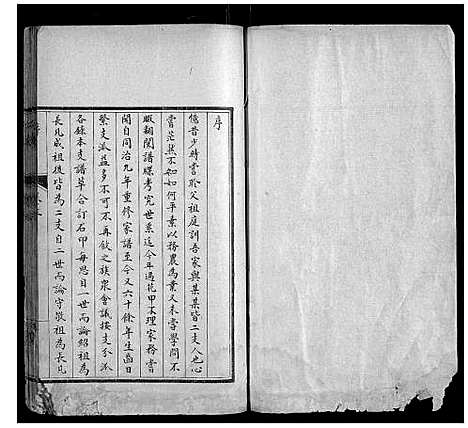 序
憶昔少時嘗聆父祖庭訓吾家與某某皆二支人也心
嘗茫然不知如何平素以務農為業又未嘗學問不
暇翻閱譜牒考究世系迄今年過花甲不理家務嘗
聞自同治九年重修家譜至今又六十餘年生齒日
繁支派益多不可不再敘之族眾會議按支分派
各錄本支譜草合訂石印每思自一世而論紹祖為
長凡成祖後皆為二支自二世而論守敬祖為長凡